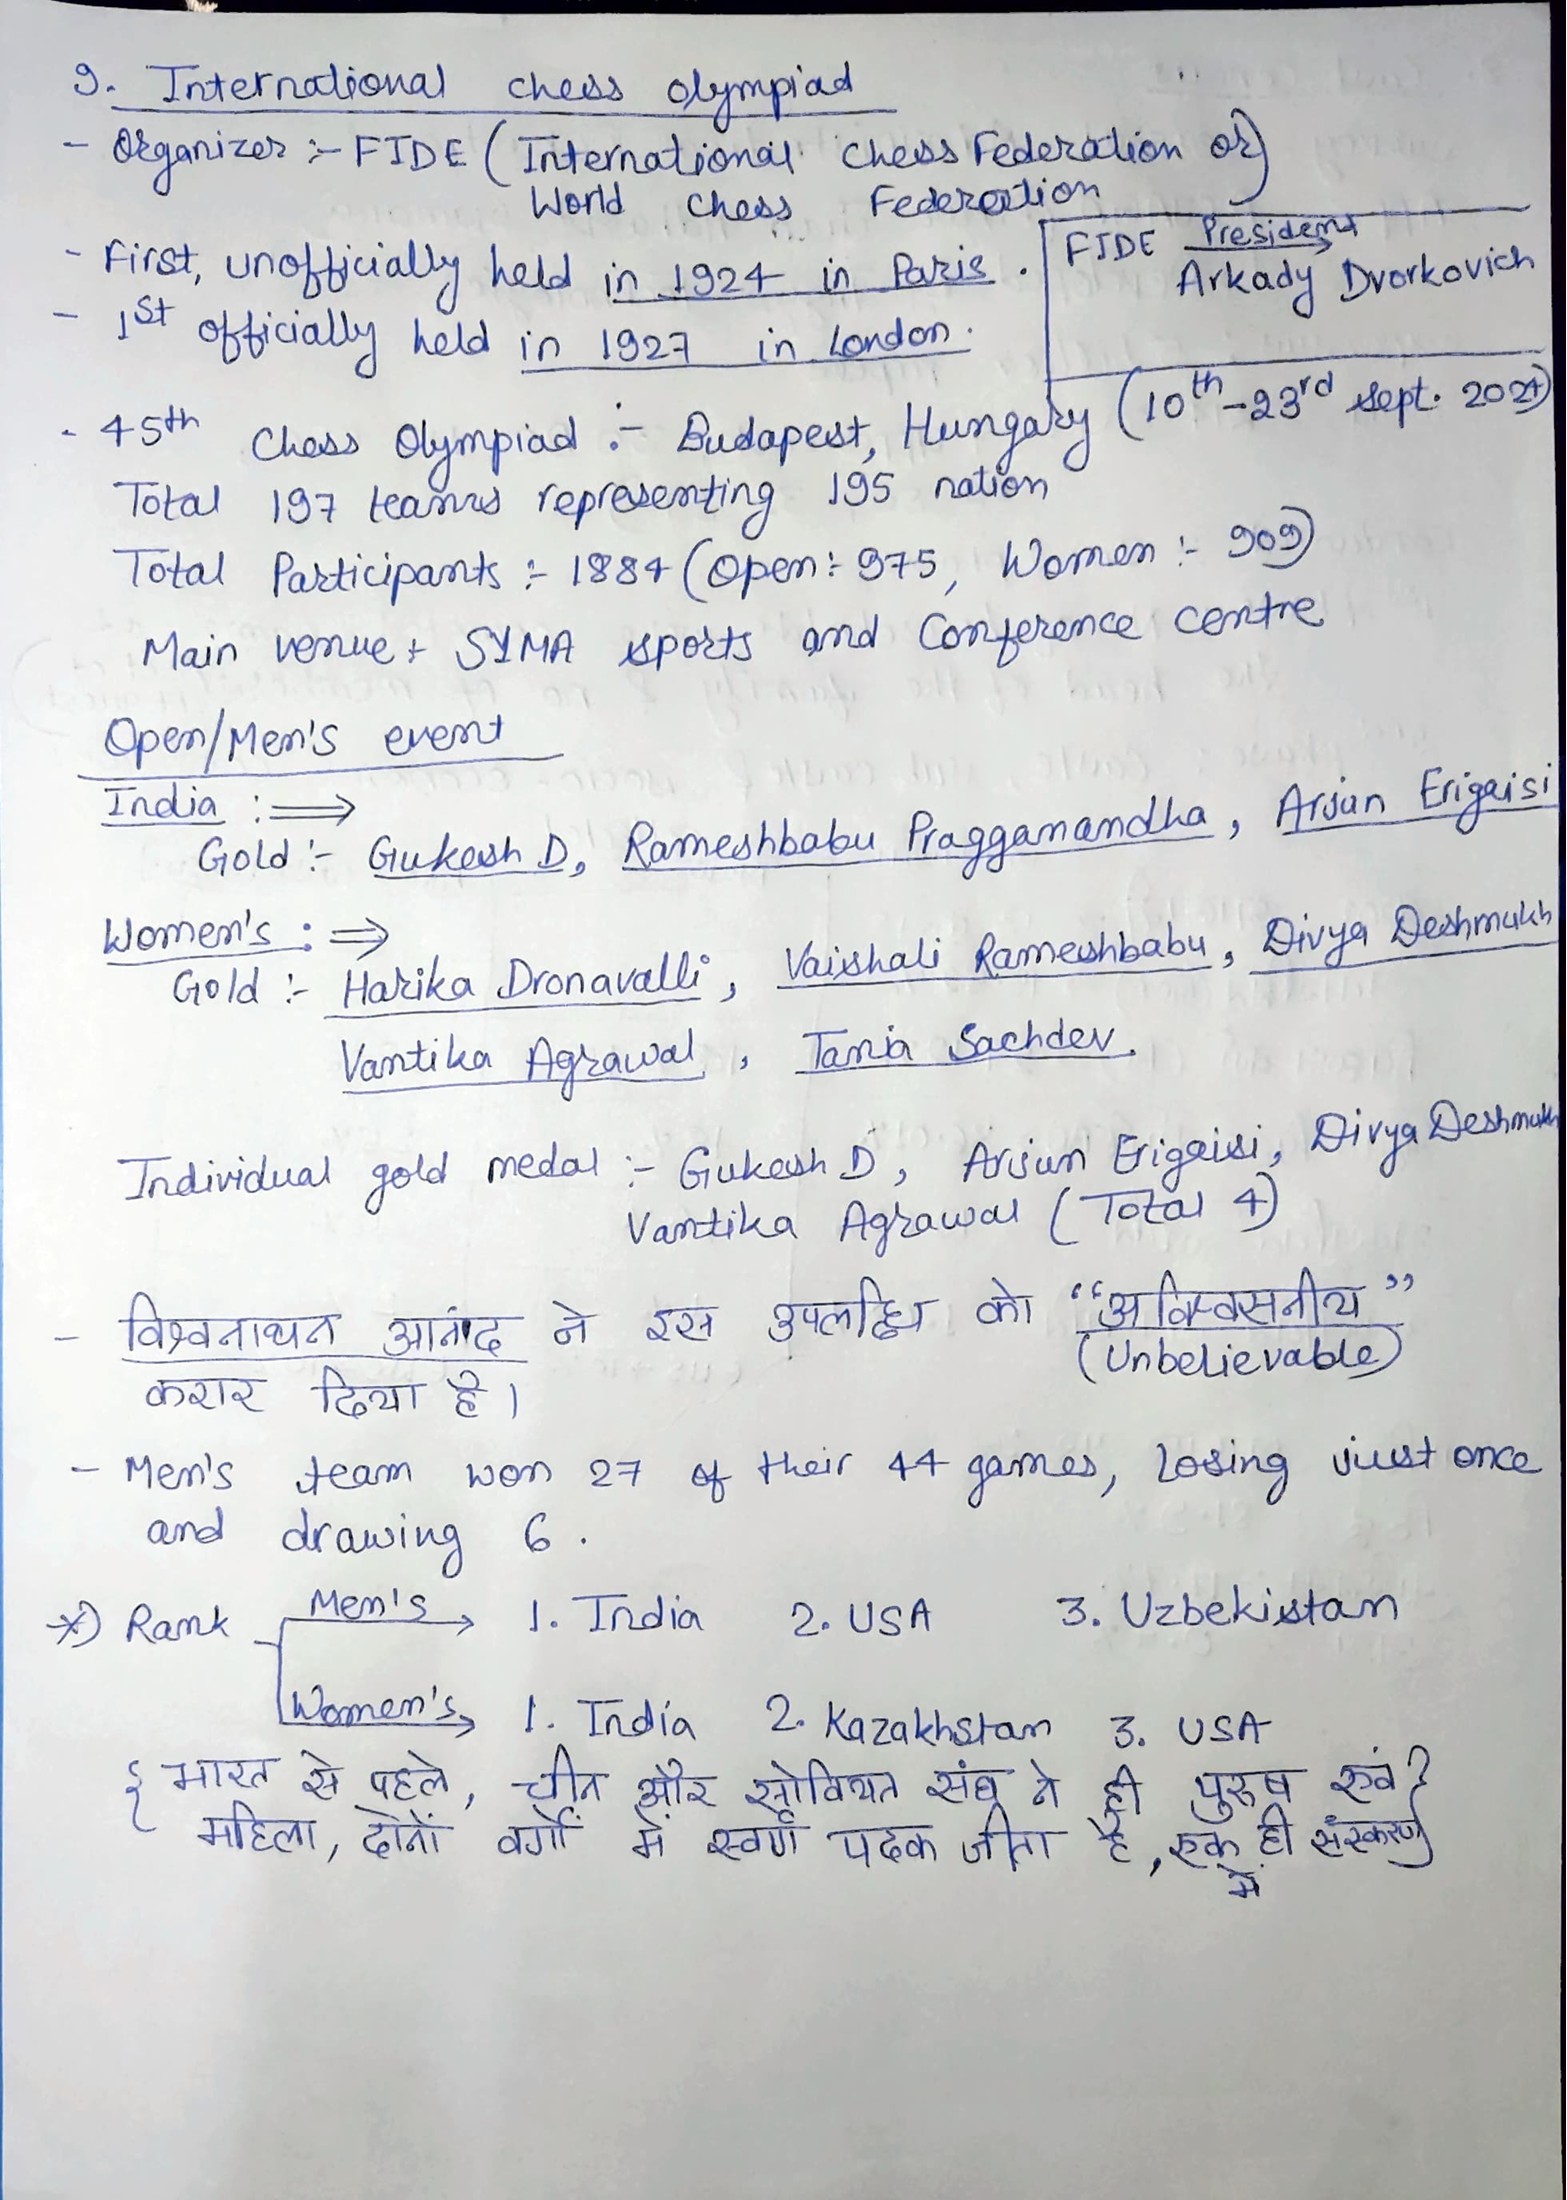 9. International chess olympiad
- Organizer :- FIDE ( International chess Federation or)
World chess Federation
- First, unofficially held in 1924 in Paris .
FIDE President
Arkady Dvorkovich
- 1st officially held in 1927 in London.
- 45th Chess Olympiad :- Budapest, Hungary (10th-23rd sept. 2024)
Total 197 teams representing 195 nation
Total Participants :- 1884 (open :- 975, Women :- 909)
Main venue + SYMA sports and Conference centre
Open/Men's event
India : ⟹
Gold :- Gukesh D, Rameshbabu Pragganandha, Arjun Erigaisi
Women's : ⟹
Gold :- Harika Dronavalli, Vaishali Rameshbabu, Divya Deshmukh
Vantika Agrawal, Tania Sachdev.
Individual gold medal :- Gukesh D, Arjun Erigaisi, Divya Deshmukh
Vantika Agrawal (Total 4)
- विश्वनाथन आनंद ने इस उपलब्धि को “अविश्वसनीय”
(Unbelievable)
करार दिया है।
- Men's team won 27 of their 44 games, losing just once
and drawing 6 .
*) Rank Men's → 1. India 2. USA 3. Uzbekistan
Women's → 1. India 2. Kazakhstan 3. USA
{ भारत से पहले, चीन और सोवियत संघ ने ही पुरुष एवं }
महिला, दोनों वर्गों में स्वर्ण पदक जीता है, एक ही संस्करण
में